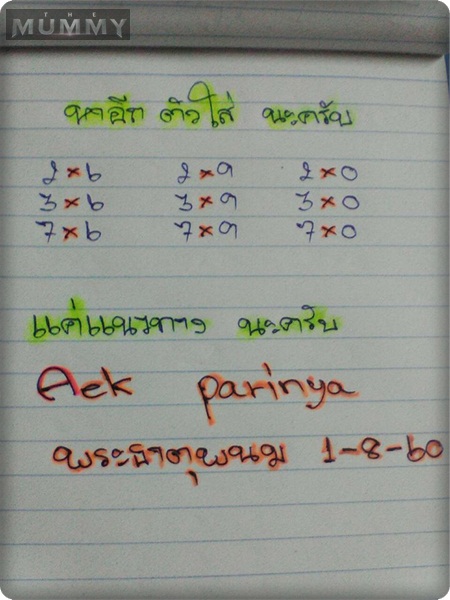 THE
MUMMY
หาอีก ตัวใส่ นะครับ
2×6 2×9 2×0
3×6 3×9 3×0
7×6 7×9 7×0
แค่แนวทาง นะครับ
Aek parinya
พระธาตุพนม 1-8-60